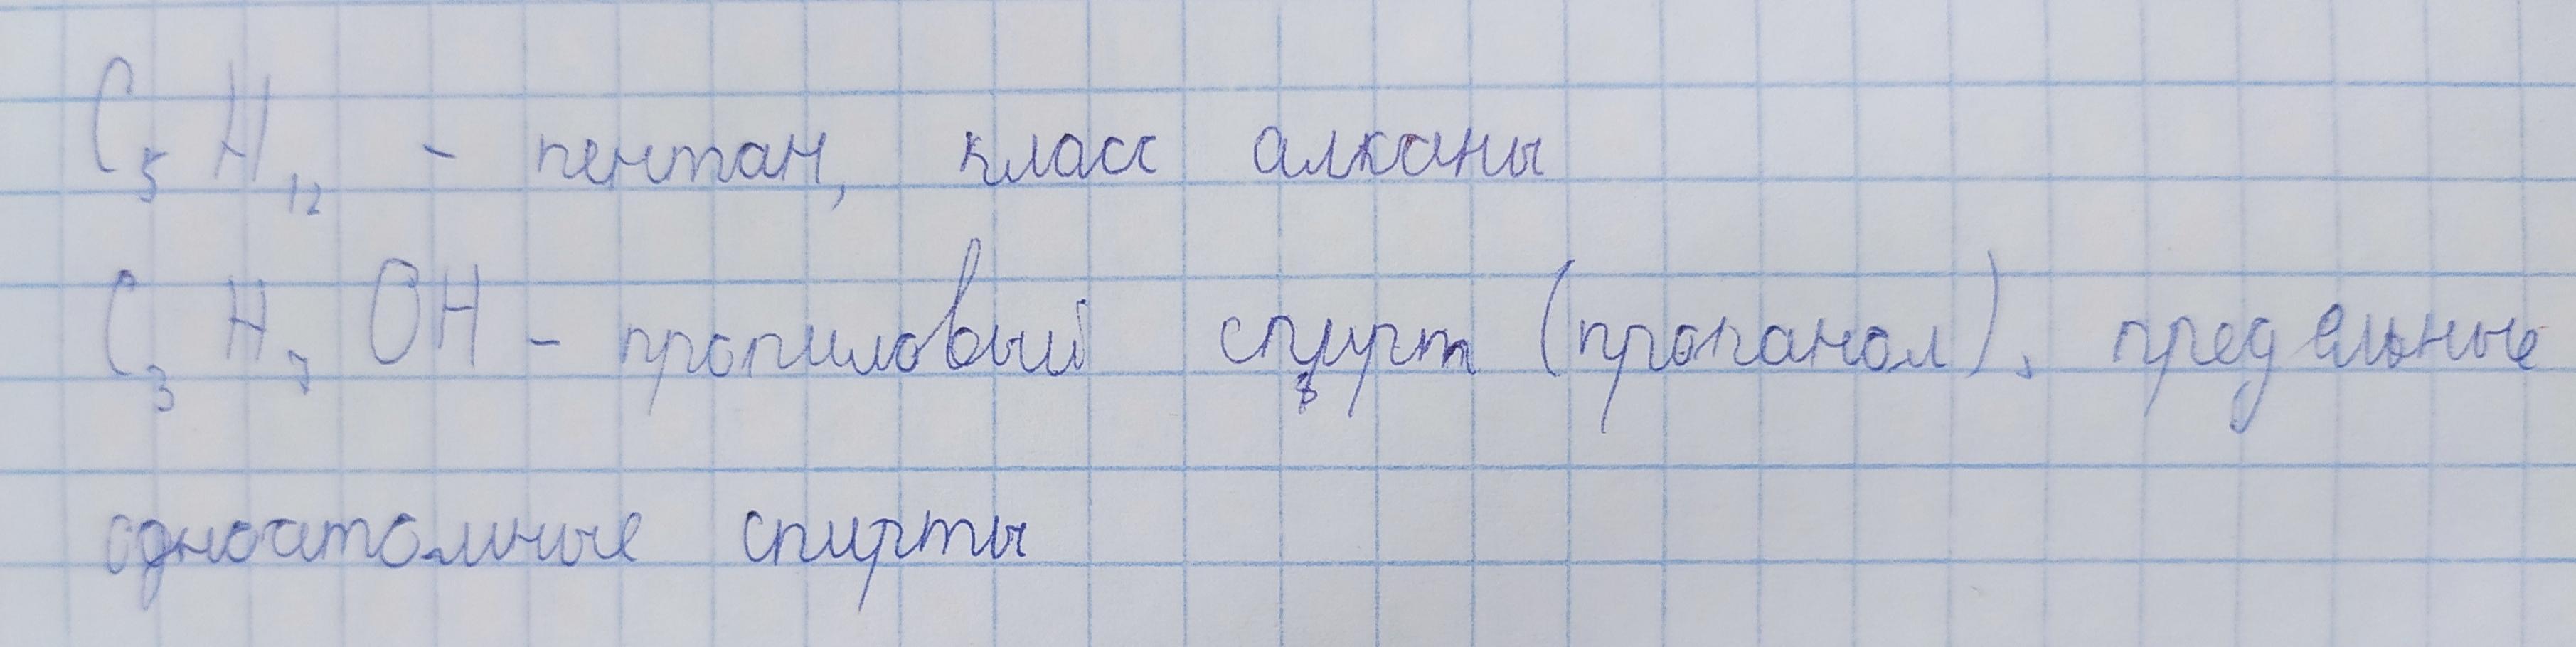 C₅H₁₂ - пентан, класс алканы
C₃H₇OH - пропиловый спирт (пропанол), предельные
одноатомные спирты